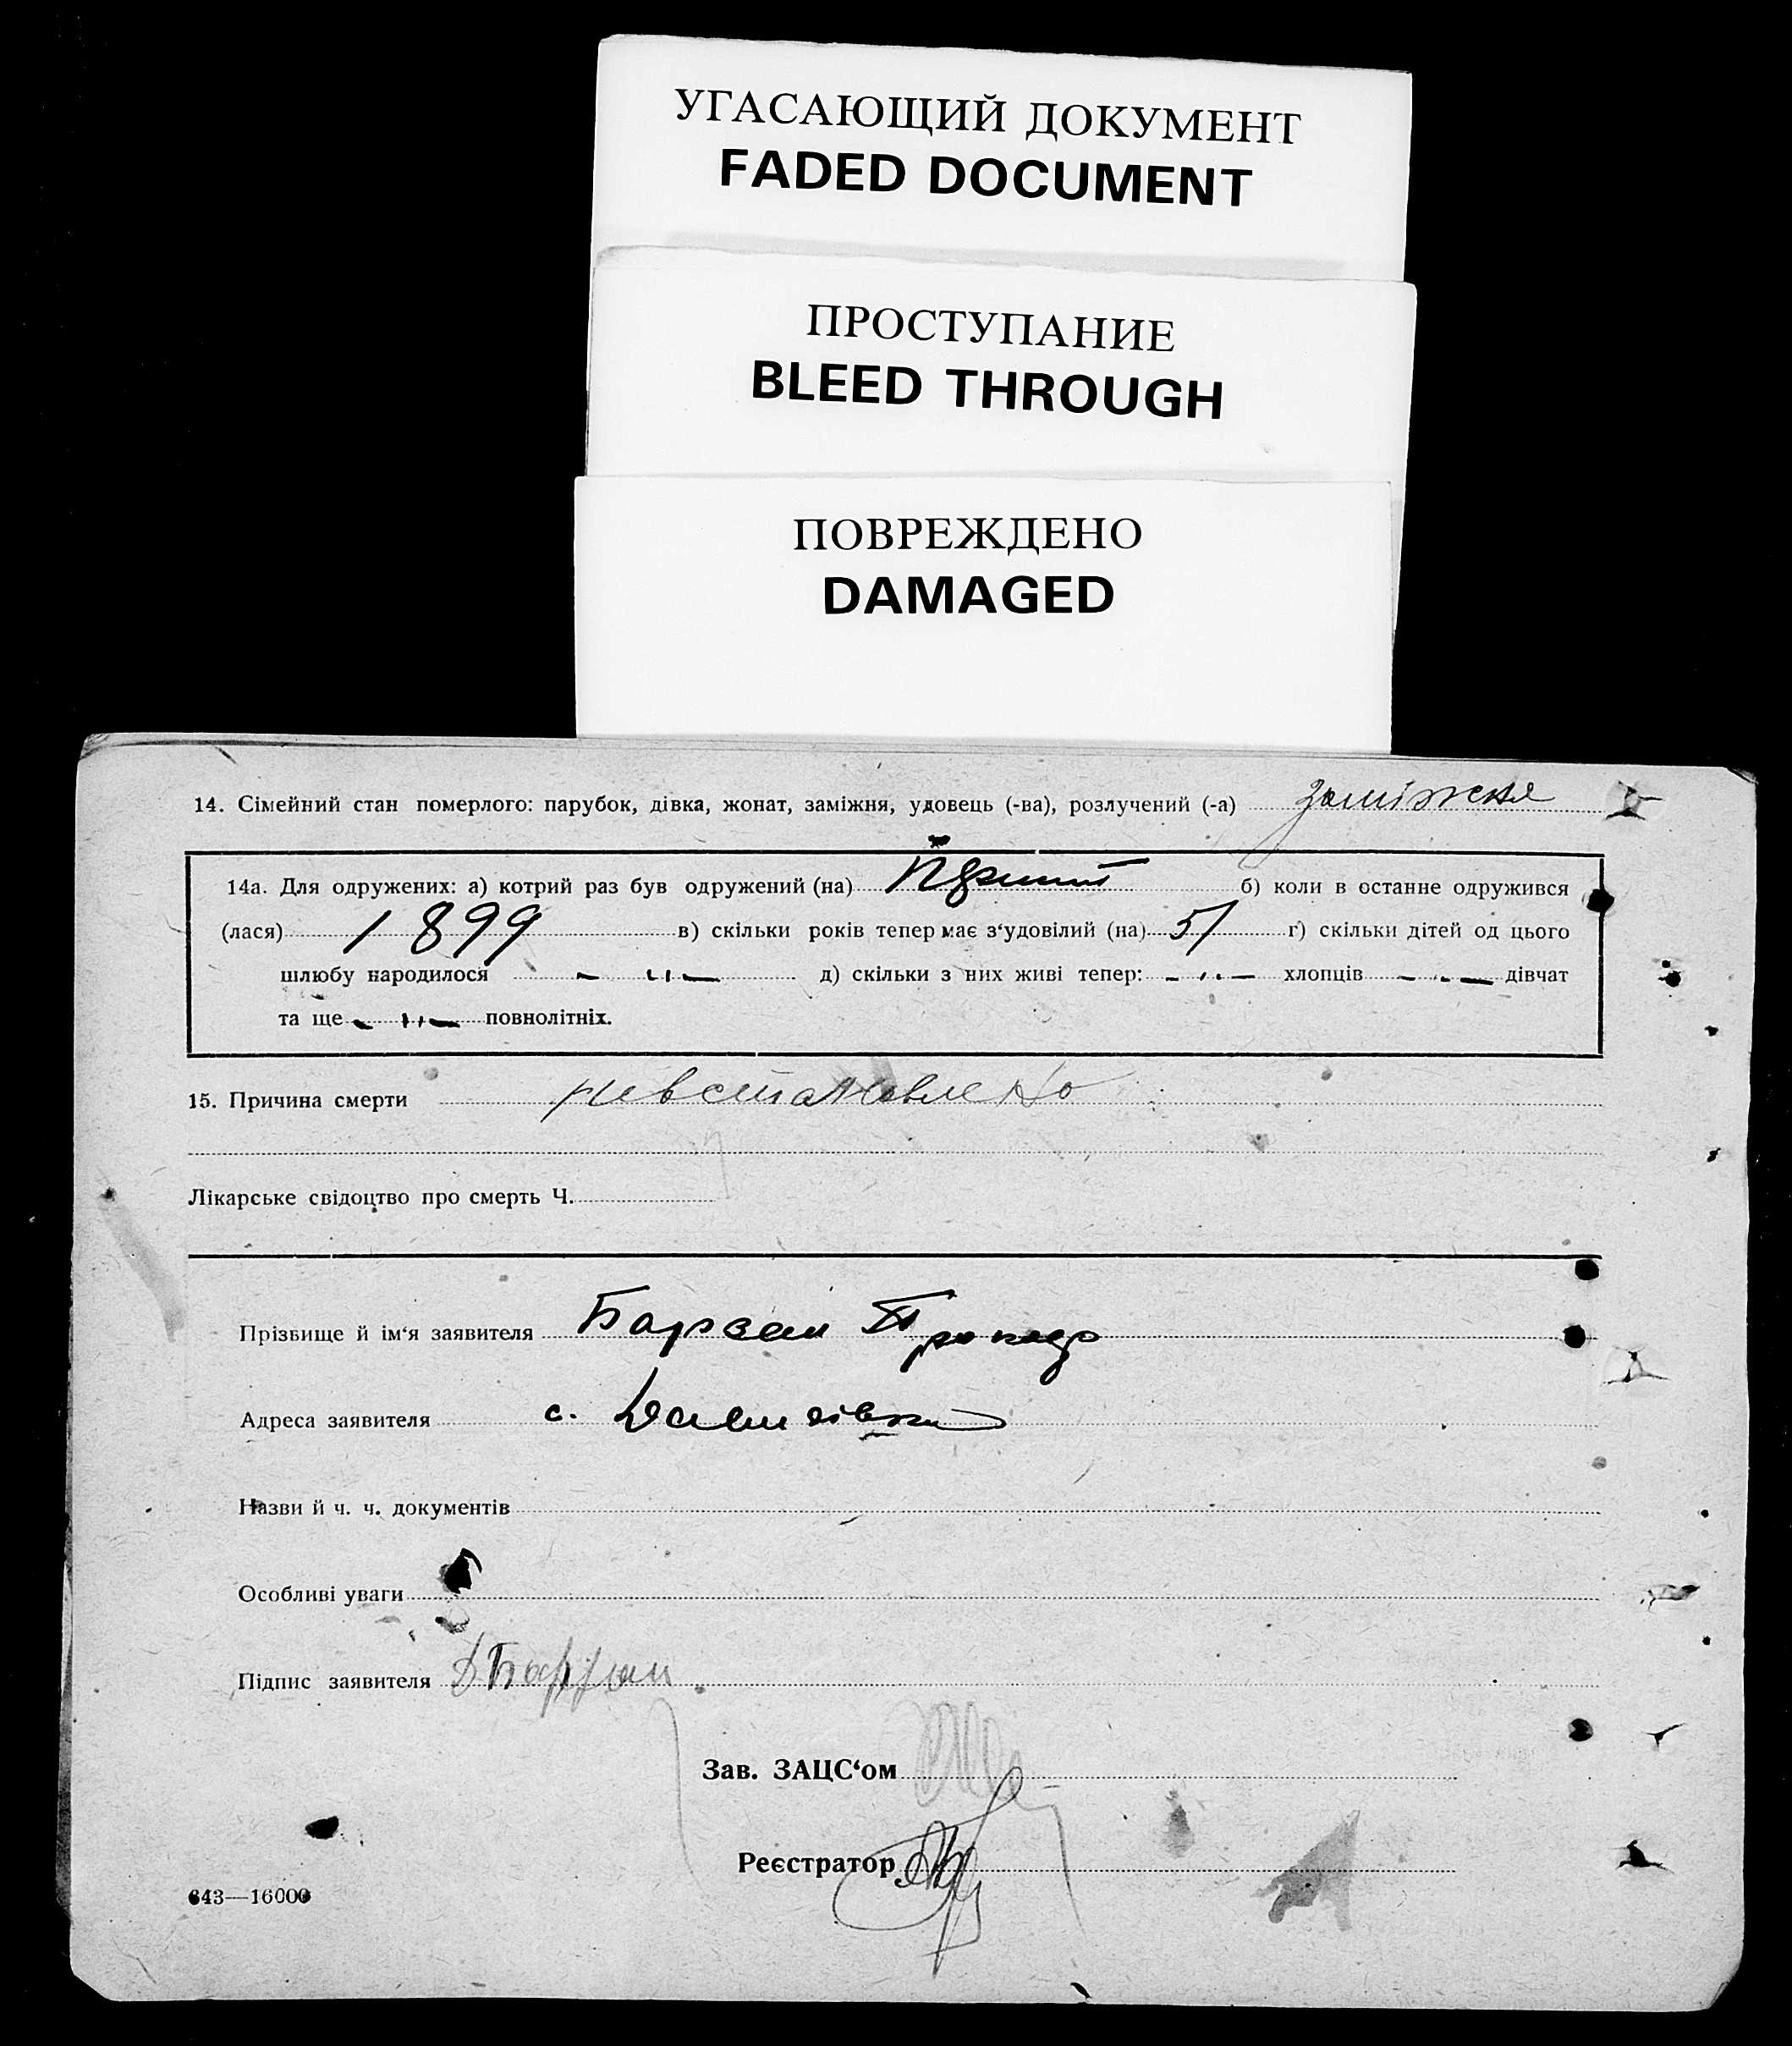 УГАСАЮЩИЙ ДОКУМЕНТ
FADED DOCUMENT
ПРОСТУПАНИЕ
BLEED THROUGH
ПОВРЕЖДЕНО
DAMAGED
14. Сімейний стан померлого: парубок, дівка, жонат, заміжня, удовець (-ва), розлучений (-а) заміжня
14а. Для одружених: а) котрий раз був одружений (на) б) коли в останне одружився
(лася) 1899 в) скільки років тепер має з‘удовілий (на) 51 г) скільки дітей од цього
шлюбу народилося - " - д) скільки з них живі тепер: - " - хлопців - " - дівчат
та ще - " - повнолітніх.
15. Причина смерти невстановлено
Лікарське свідоцтво про смерть Ч.
Прізвище й ім‘я заявителя
Адреса заявителя с.
Назви й ч. ч. документів
Особливі уваги
Підпис заявителя
Зав. ЗАЦС‘ом
Реєстратор
643—16000